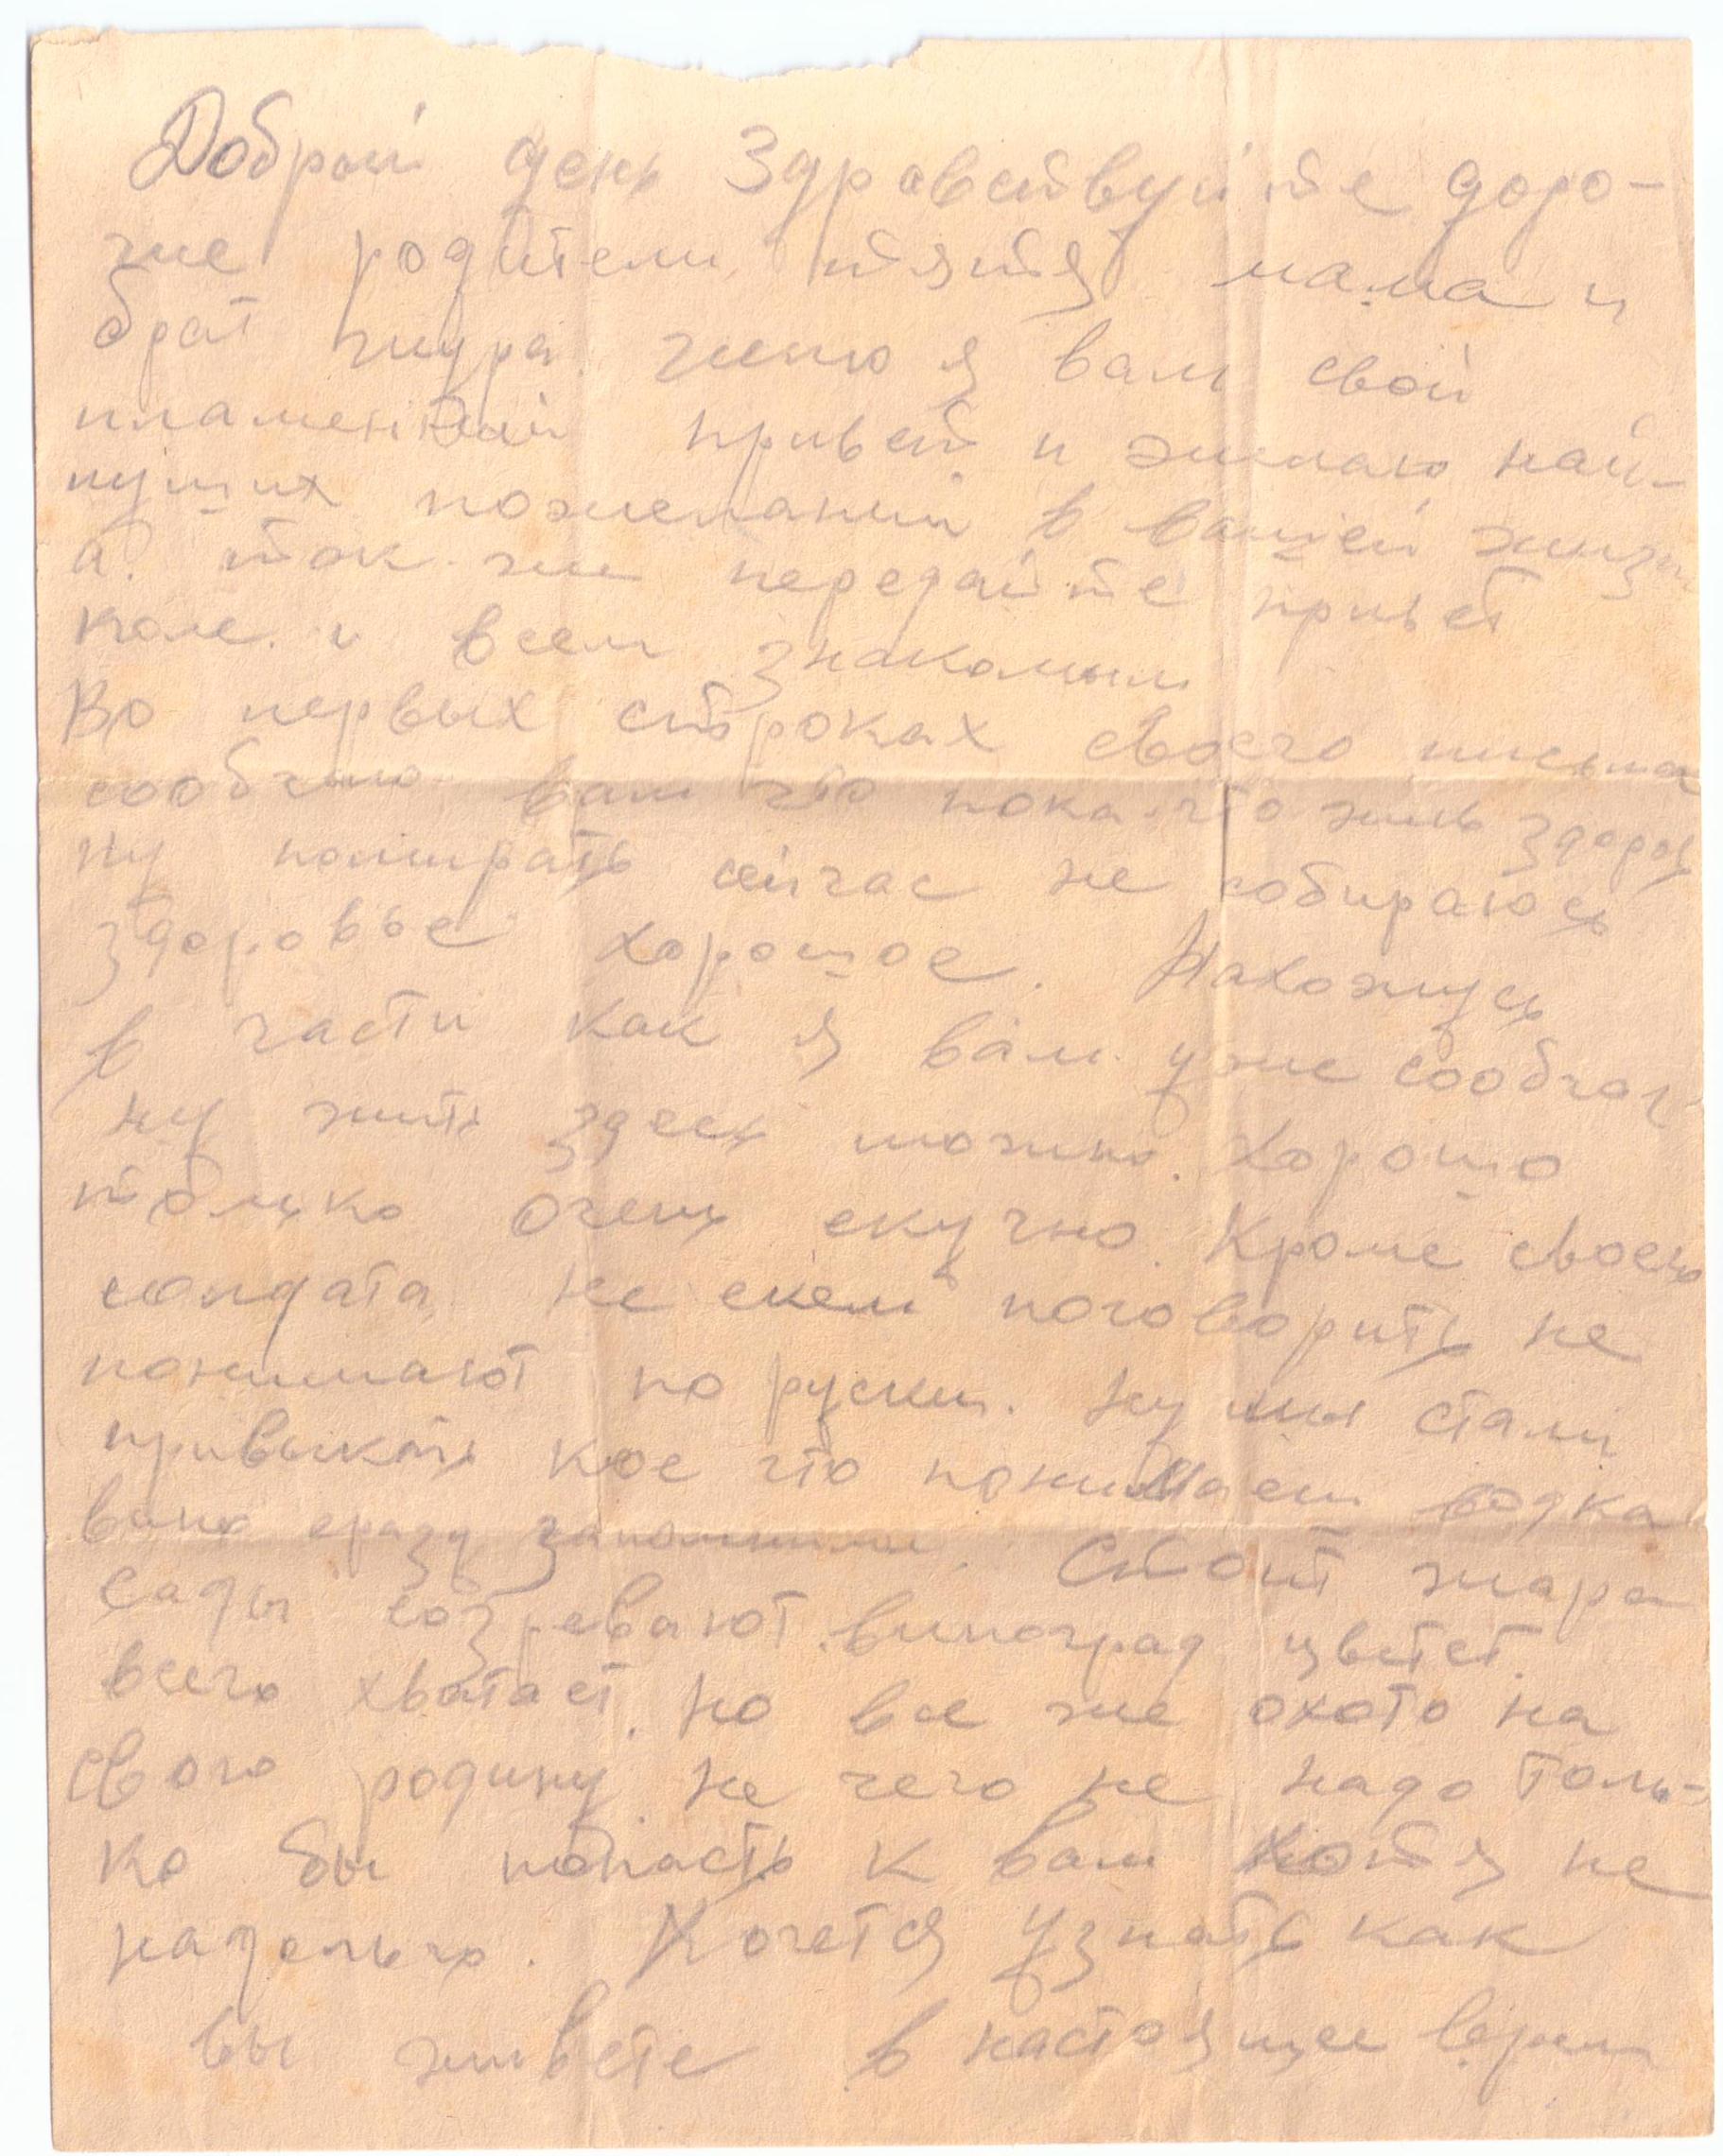 Доброй день Здравствуйте доро-
гие родители тятя мама и
брат шура. шлю я вам свой
пламенный привет и желаю най-
лучших пожеланий в вашей жизни
а. так же передайте привет
коле. и всем знакомым
Во первых строках своего письма
сообчаю вам что пока что жив здоров
ну помирать сейчас не собираюсь
здоровье хорошое. Нахожусь
в части как я вам уже сообчал
ну жить здесь можно. Хорошо
только очень скучно. Кроме своего
солдата не скем поговорить не
понимают по руски. ну мы стали
привыкать кое что понимаем водка
вино сразу запомнили. Стоит жара
сады созревают. виноград цветет.
всего хватает. но все же охото на
свою родину. не чего не надо толь-
ко бы попасть к вам хотя не
надолго. Хочется узнать как
вы живете в настоящее время